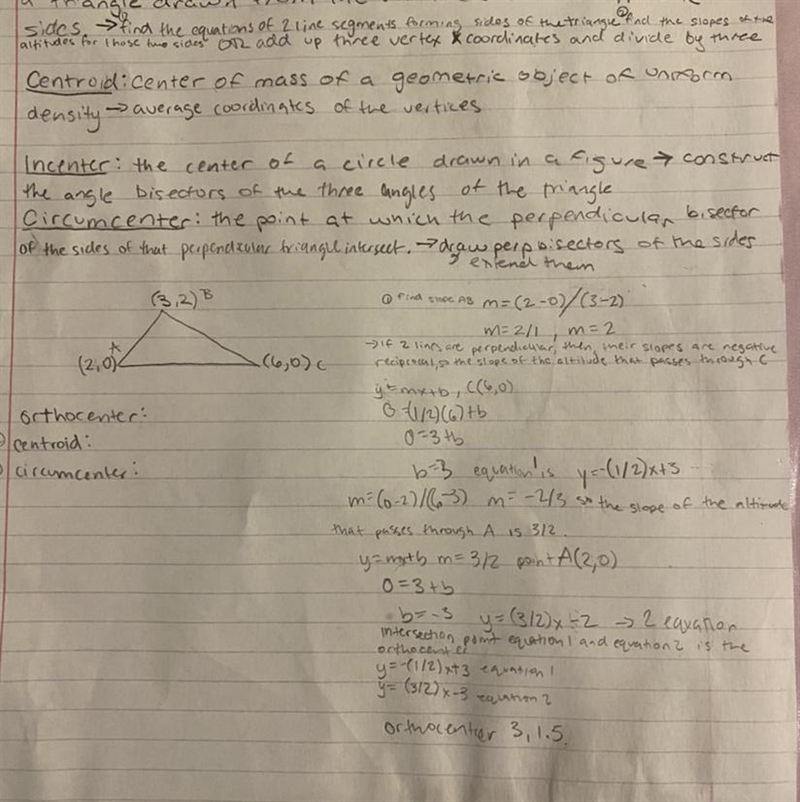 a triangle drawn from the
sides. → ① find the equations of 2 line segments forming sides of the triangle ② find the slopes of the
altitudes for those two sides OR add up three vertex x coordinates and divide by three
Centroid: center of mass of a geometric object of uniform
density → average coordinates of the vertices
Incenter: the center of a circle drawn in a figure → construct
the angle bisectors of the three angles of the triangle
Circumcenter: the point at which the perpendicular bisector
of the sides of that perpendicular triangle intersect. → draw perp bisectors of the sides
extend them
(3,2) B
A
(2,0)
(6,0) C
① Find slope AB m=(2-0)/(3-2)
m=2/1, m=2
→ If 2 lines are perpendicular, then, their slopes are negative
reciprocal, so the slope of the altitude that passes through C
y=mx+b, C(6,0)
0=(1/2)(6)+b
0=3+b
b=3 equation 1 is y=-(1/2)x+3
m=(0-2)/(6-3) m=-2/3 so the slope of the altitude
that passes through A is 3/2.
y=mx+b m=3/2 point A(2,0)
0=3+b
b=-3 y=(3/2)x-2 → 2 equation
intersection point equation 1 and equation 2 is the
orthocenter
y=-(1/2)x+3 equation 1
y=(3/2)x-3 equation 2
orthocenter 3, 1.5
orthocenter:
centroid:
circumcenter: